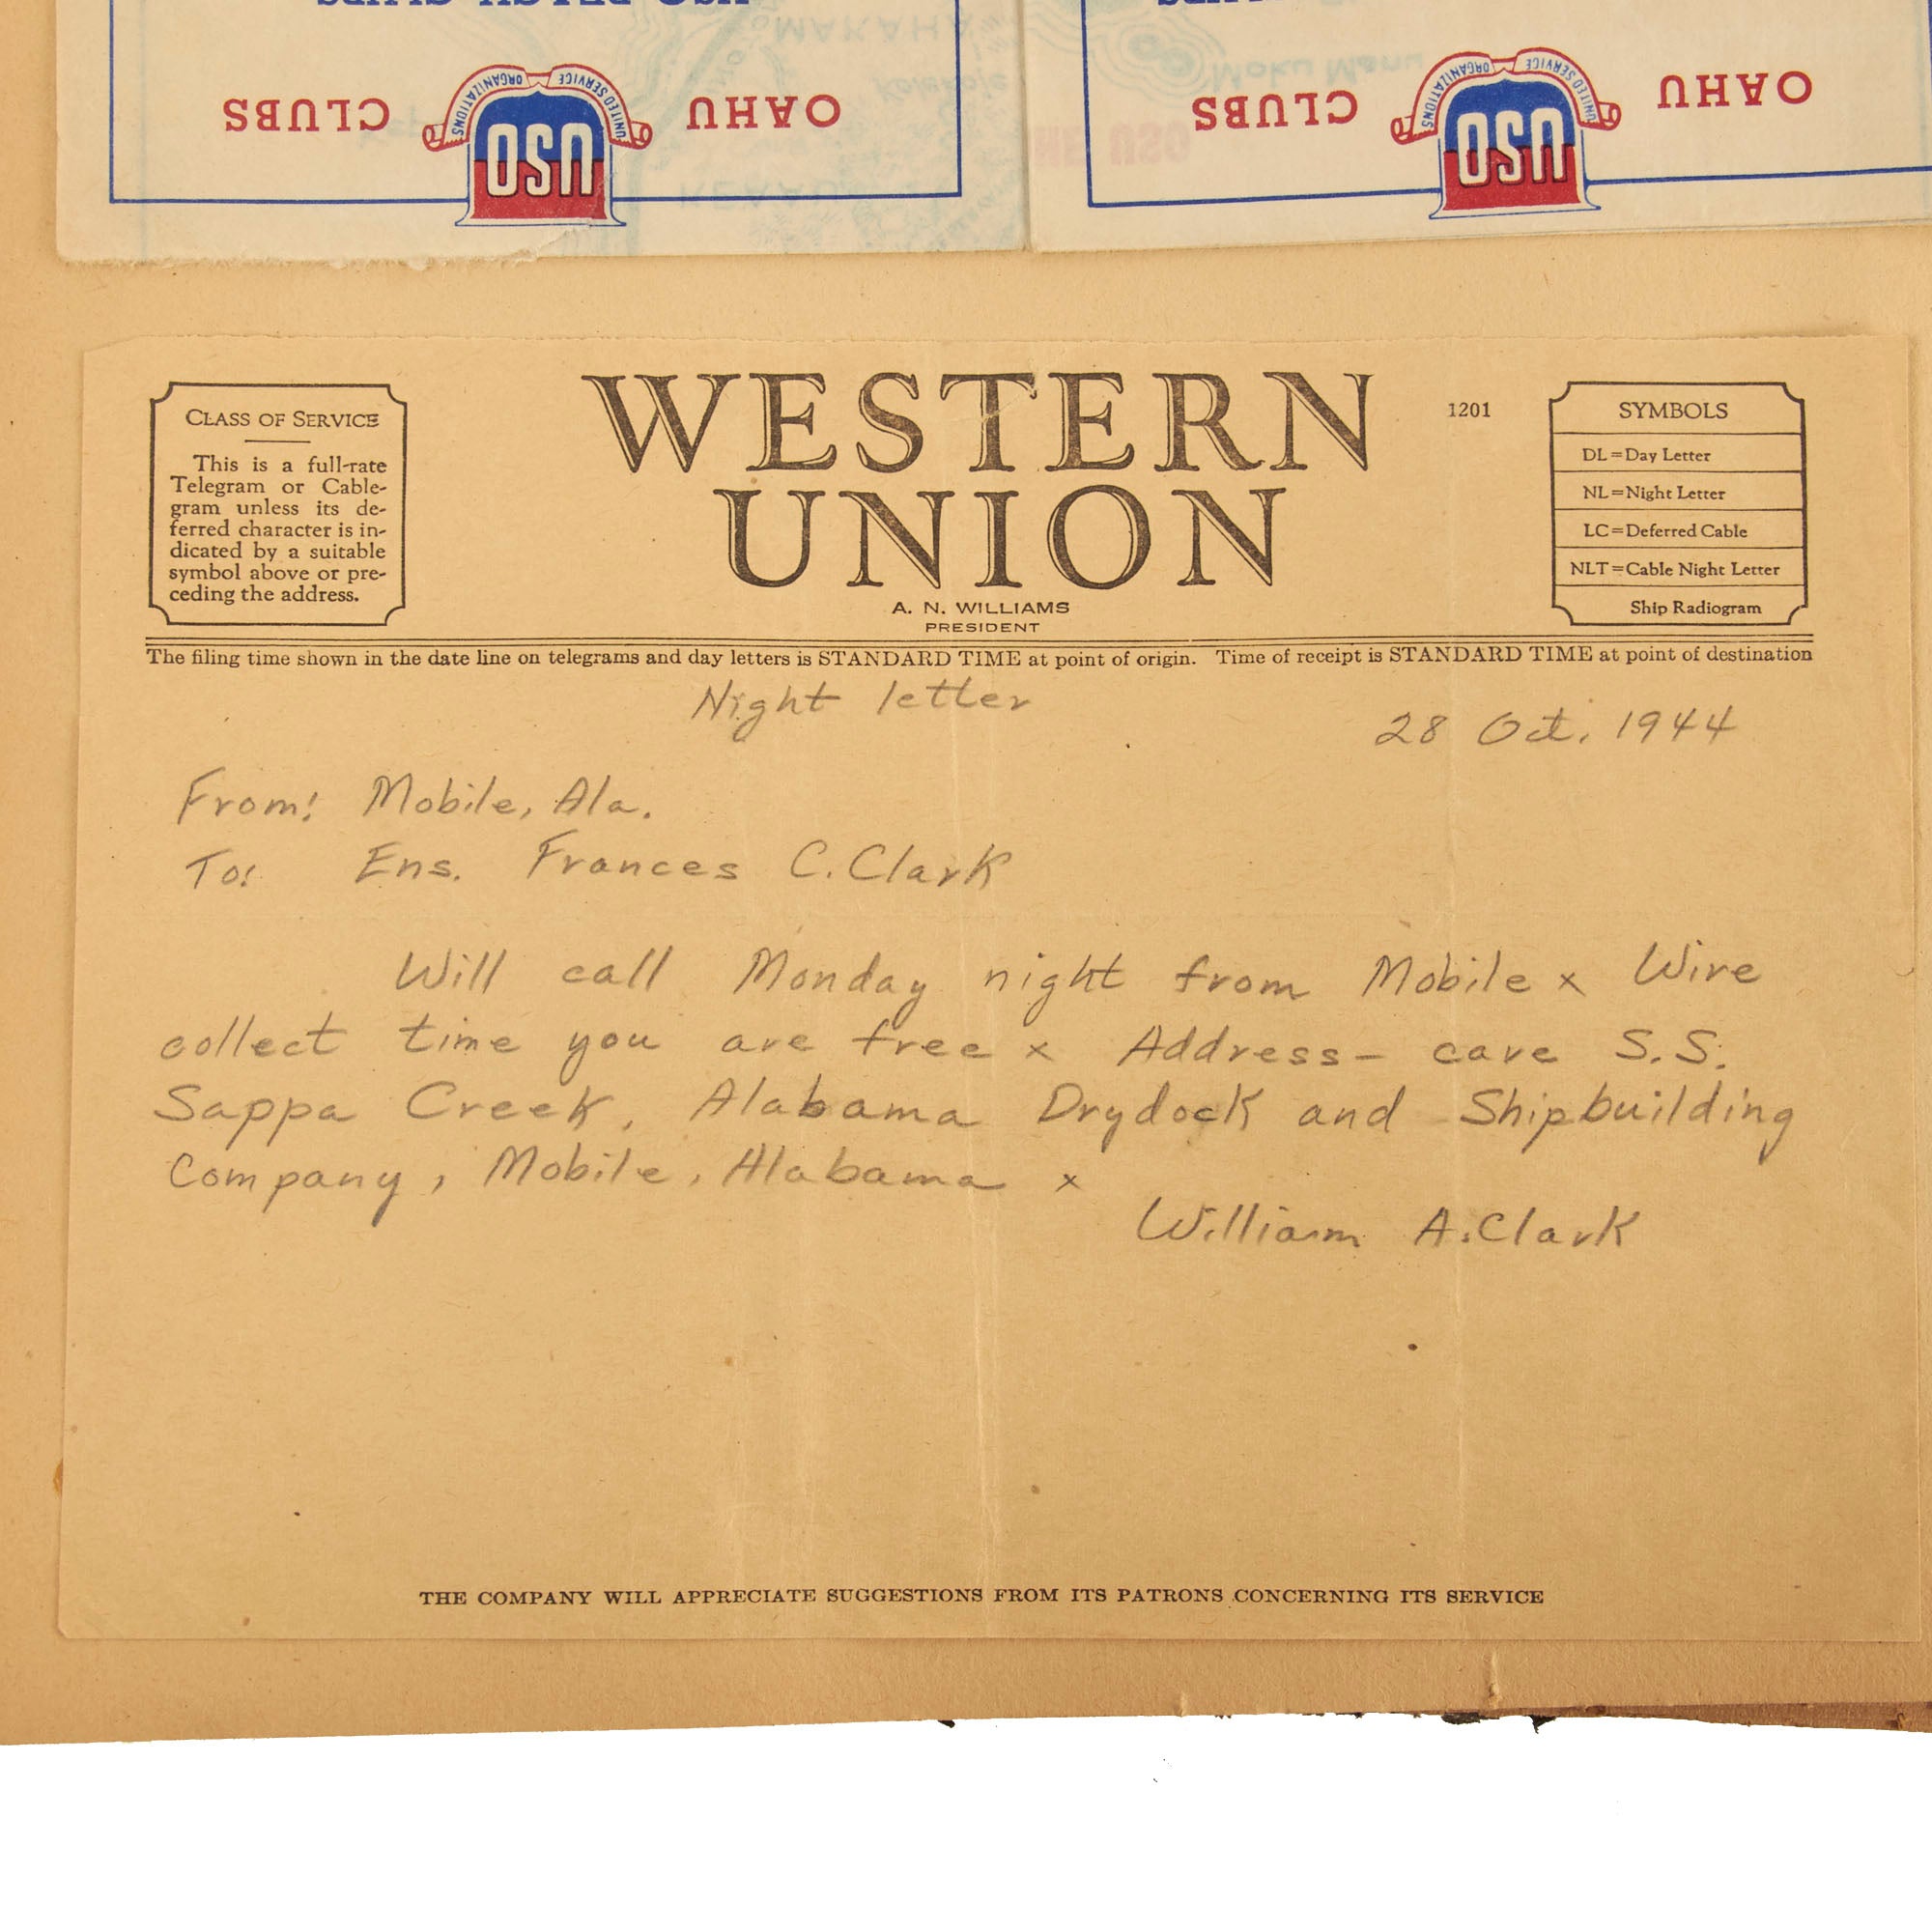 USO BEACH CLUBS
OAHU CLUBS
UNITED SERVICE ORGANIZATIONS
USO
MAKAHA
Moku Manu
OAHU CLUBS
UNITED SERVICE ORGANIZATIONS
USO
CLASS OF SERVICE
This is a full-rate
Telegram or Cable-
gram unless its de-
ferred character is in-
dicated by a suitable
symbol above or pre-
ceding the address.
WESTERN
UNION
A. N. WILLIAMS
PRESIDENT
1201
SYMBOLS
DL=Day Letter
NL=Night Letter
LC=Deferred Cable
NLT=Cable Night Letter
Ship Radiogram
The filing time shown in the date line on telegrams and day letters is STANDARD TIME at point of origin. Time of receipt is STANDARD TIME at point of destination
Night letter
28 Oct. 1944
From: Mobile, Ala.
To: Ens. Frances C. Clark
Will call Monday night from Mobile x Wire
collect time you are free x Address- care S.S.
Sappa Creek, Alabama Drydock and Shipbuilding
Company, Mobile, Alabama x
William A. Clark
THE COMPANY WILL APPRECIATE SUGGESTIONS FROM ITS PATRONS CONCERNING ITS SERVICE